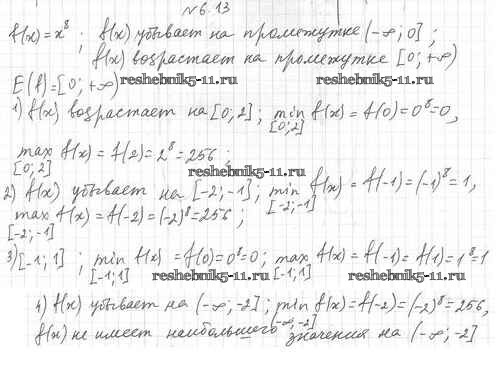 №6.13
f(x)=x⁸ ; f(x) убывает на промежутке (-∞; 0] ;
f(x) возрастает на промежутке [0; +∞)
E(f)=[0; +∞)
reshebnik5-11.ru reshebnik5-11.ru
1) f(x) возрастает на [0; 2] ; min f(x) = f(0)=0⁸=0,
[0; 2]
max f(x) = f(2)=2⁸=256 ;
[0; 2]
reshebnik5-11.ru
2) f(x) убывает на [-2; -1] ; min f(x) = f(-1)=(-1)⁸=1,
[-2; -1]
max f(x) = f(-2)=(-2)⁸=256 ;
[-2; -1]
3) [-1; 1] ; min f(x) = f(0)=0⁸=0 ; max f(x) = f(-1)=f(1)=1⁸=1
[-1; 1] [-1; 1]
reshebnik5-11.ru reshebnik5-11.ru
4) f(x) убывает на (-∞; -2] ; min f(x)=f(-2)=(-2)⁸=256,
(-∞; -2]
f(x) не имеет наибольшего значения на (-∞; -2]